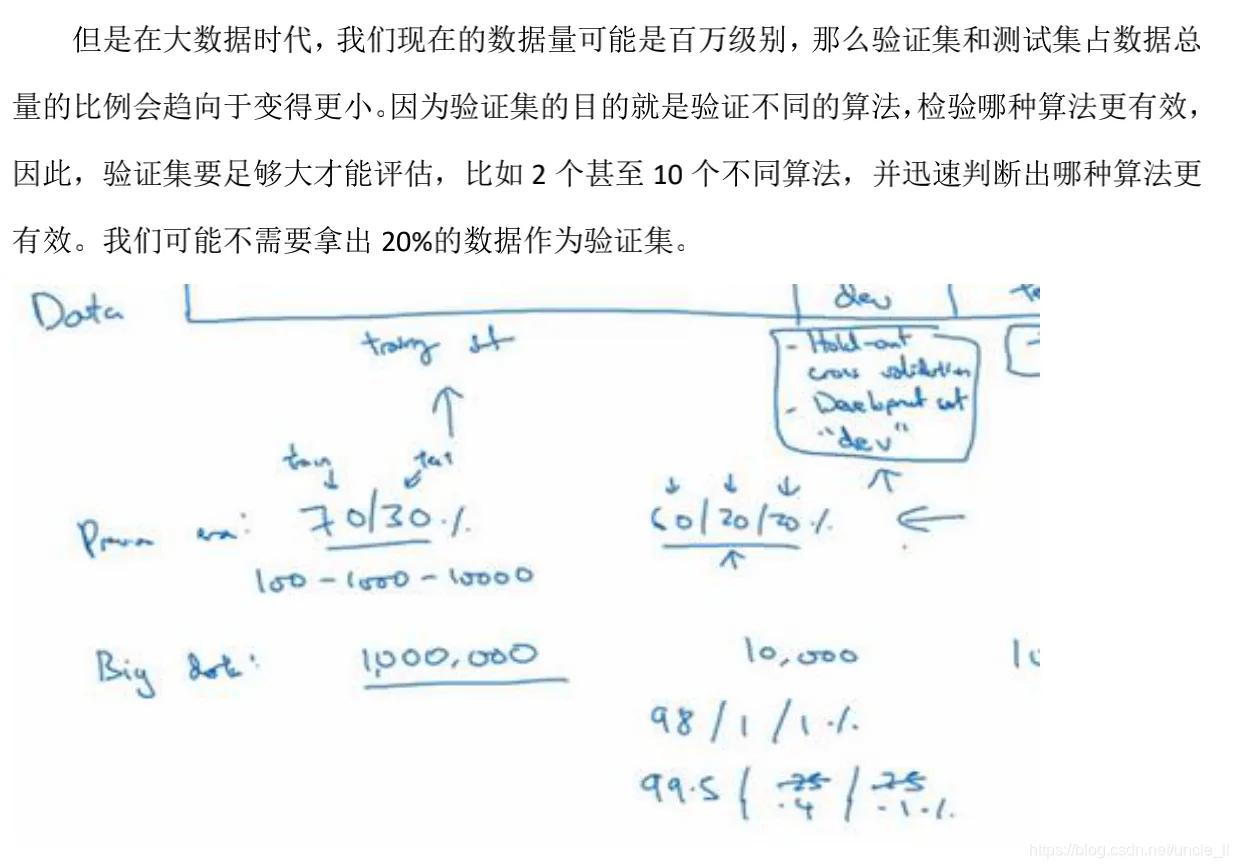 但是在大数据时代，我们现在的数据量可能是百万级别，那么验证集和测试集占数据总
量的比例会趋向于变得更小。因为验证集的目的就是验证不同的算法，检验哪种算法更有效，
因此，验证集要足够大才能评估，比如 2 个甚至 10 个不同算法，并迅速判断出哪种算法更
有效。我们可能不需要拿出 20%的数据作为验证集。
Data
dev
- Hold-out
cross validation
- Development set
"dev"
70/30 %
60/20/20 %
100 - 1000 - 10000
Big data:
1,000,000
10,000
98 / 1 / 1 %
99.5 / .25 / .25
.4 .1 %
https://blog.csdn.net/uncle_ll